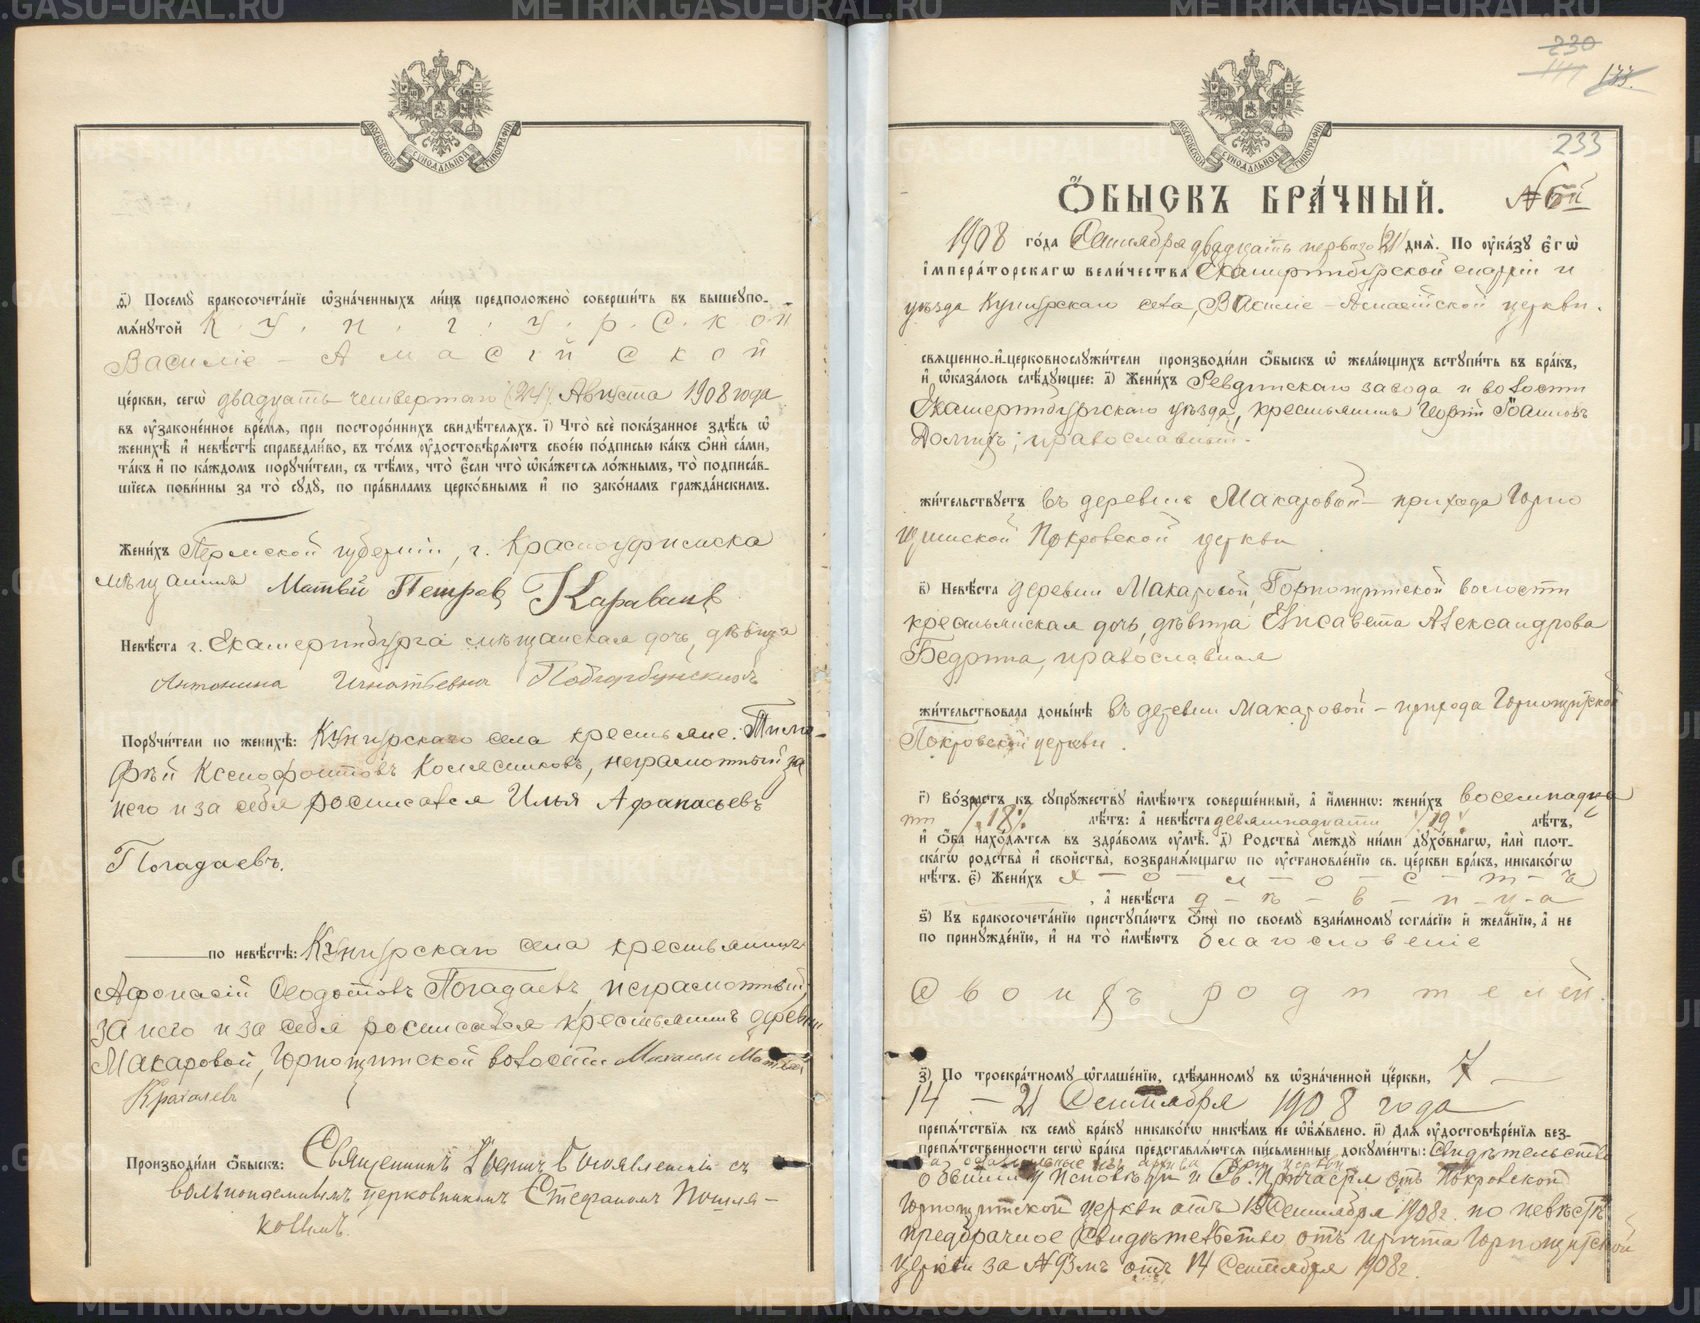 METRIKI.GASU-URAL.RU
МОСКОВСКОЙ СѴНОДАЛЬНОЙ ТИПОГРАФІИ
ѳ҃) Посемꙋ бракосочета́нїе ѡ҆зна́ченныхъ ли́цъ предположено̀ соверши́ть въ вышеупо-
мѧ́нутой К. у. н. г. у. р. с. к о й
Василіе - А м а с і й с к о й
це́ркви, сегѡ̀ двадцать четвертаго (24) Августа 1908 года
въ ᲂу҆зако́ненное вре́мѧ, при посторо́ннихъ свидѣ́телѧхъ. і҃) Что̀ всѐ пока́занное здѣ́сь ѡ҆
женихѣ̀ и҆ невѣ́стѣ справедли́во, въ то́мъ ᲂу҆достовѣрѧ́ютъ свое́ю по́дписью ка́къ ѻ҆нѝ са́ми,
та́къ и҆ по ка́ждомъ поручи́тели, съ тѣ́мъ, что̀ є҆́сли что̀ ѡ҆ка́жетсѧ ло́жнымъ, то̀ подписа́в-
шїесѧ пови́нны за то̀ сꙋдꙋ̀, по пра́виламъ церко́внымъ и҆ по зако́намъ гражда́нскимъ.
Жени́хъ Пермской губерніи, г. Красноуфимска
мѣщанинъ Матвѣй Петровъ Караваевъ
Невѣ́ста г. Екатеринбурга мѣщанская дочь, дѣвица
Антонина Игнатьевна
Поручи́тели по женихѣ̀: Кунгурскаго села крестьяне: Тимо-
фѣй Ксенофонтовъ Колясниковъ, неграмотный за
него и за себя росписался Илья Афанасьевъ
Погадаевъ.
по невѣ́стѣ: Кунгурскаго села крестьянинъ
Афонасій Ѳеодотовъ Погадаевъ, неграмотный,
за него и за себя росписался крестьянинъ деревни
Макаровой, Горнощитской волости Михаилъ
Производи́ли ѻ҆́быскъ: Священникъ Богоявленскій съ
вольнонаемнымъ церковникомъ Стефаномъ Пошля-
ковымъ.
230
133.
233
Ѻ҆́БЫСКЪ БРА́ЧНЫЙ. №6й
1908 го́да Сентября двадцать перваго 21 днѧ̀. По ᲂу҆ка́зꙋ є҆гѡ̀
і҆мпера́торскагѡ вели́чества Екатеринбургской епархіи и
уѣзда Кунгурскаго села, Василіе-Амасійской церкви.
свѧще́нно-и҆-церковнослꙋжи́тели производи́ли ѻ҆́быскъ ѡ҆ жела́ющихъ встꙋпи́ть въ бра́къ,
и҆ ѡ҆каза́лось слѣ́дꙋющее: а҃) Жени́хъ Ревдинскаго завода и волости
Екатеринбургскаго уѣзда, крестьянинъ Георгій Іоанновъ
православный.
жи́тельствꙋетъ въ деревнѣ Макаровой - прихода Горно
щитской Покровской церкви
в҃) Невѣ́ста деревни Макаровой, Горнощитской волости
крестьянская дочь, дѣвица Елисавета Александрова
Бедрина, православная
жи́тельствовала доны́нѣ въ деревни Макаровой - прихода Горнощитской
Покровской церкви.
г҃) Во́зрастъ къ сꙋпрꙋжествꙋ и҆мѣ́ютъ соверше́нный, а҆ и҆́меннѡ: жени́хъ восемнадца
ти /.18/. лѣ́тъ: а҆ невѣ́ста девятнадцати /19/ лѣ́тъ,
и҆ ѻ҆́ба нахо́дѧтсѧ въ здра́вомъ ᲂу҆мѣ̀. д҃) Родства̀ междꙋ̀ ни́ми дꙋхо́внагѡ, и҆лѝ плот-
ска́гѡ родства̀ и҆ сво́йства, возбранѧ́ющагѡ по ᲂу҆становле́нїю св. це́ркви бра́къ, никако́гѡ
нѣ́тъ. є҃) Жени́хъ х - о - л - о - с - т - ъ
, а҆ невѣ́ста д - ѣ - в - и - ц - а
ѕ҃) Къ бракосочета́нїю пристꙋпа́ютъ ѻ҆нѝ по своемꙋ̀ взаи́мномꙋ согла́сїю и҆ жела́нїю, а҆ не
по принꙋжде́нїю, и҆ на то̀ и҆мѣ́ютъ благословеніе
С в о и х ъ р о д и т е л е й.
з҃) По троекра́тномꙋ ѡ҆глаше́нїю, сдѣ́ланномꙋ въ ѡ҆зна́ченной це́ркви, 7 -
14 - 21 Сентября 1908 года
препѧ́тствїѧ къ семꙋ̀ бра́кꙋ никако́гѡ никѣ́мъ не ѡ҆б̾ѧ́влено. и҃) Длѧ̀ ᲂу҆достовѣре́нїѧ без-
препѧ́тственности сегѡ̀ бра́ка представлѧ́ютсѧ пи́сьменные докꙋме́нты: Свидѣтельство
о бытіи у Исповѣди и Св. Причастія отъ Покровской
Горнощитской церкви отъ 13 Сентября 1908 г. по невѣстѣ
предбрачное Свидѣтельство отъ причта Горнощитской
Церкви за №93мъ отъ 14 Сентября 1908 г.